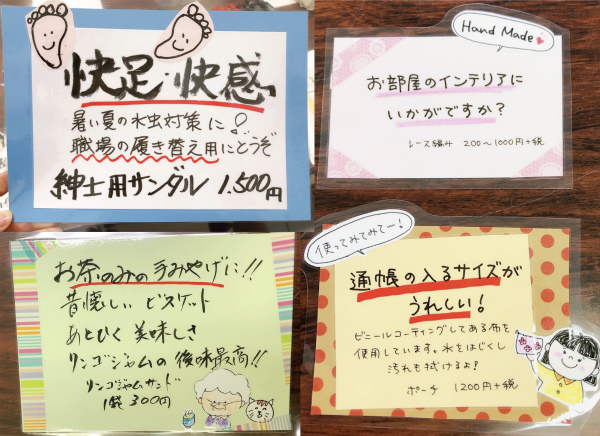 快足・快感
暑い夏の水虫対策に!
職場の履き替え用にどうぞ
紳士用サンダル 1.500円
Hand Made
お部屋のインテリアに
いかがですか?
レース編み 200〜1000円+税
お茶のみの手みやげに!!
昔懐しい ビスケット
あとひく 美味しさ
リンゴジャムの後味最高!!
リンゴジャムサンド
1袋 300円
使ってみてみてー!
通帳の入るサイズが
うれしい!
ビニールコーティングしてある布を
使用しています。水をはじくし
汚れも拭けるよ!
ポーチ 1200円+税